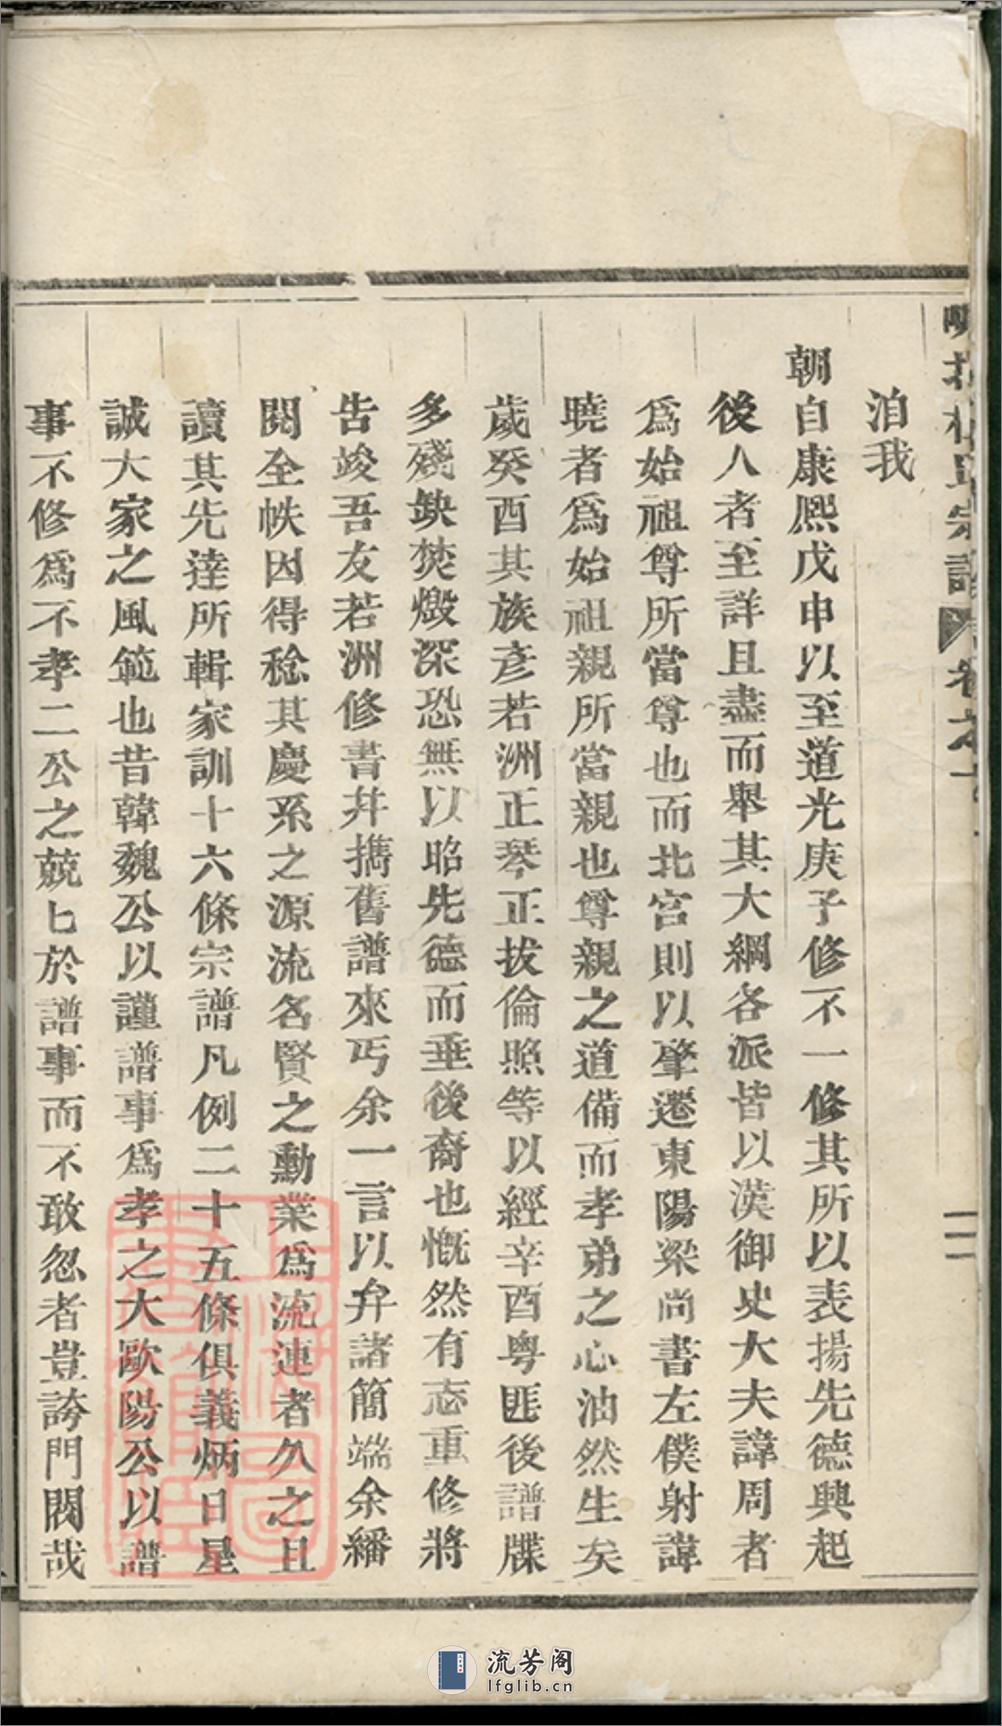 洎我
朝自康熙戊申以至道光庚子修不一修其所以表揚先德興起
後人者至詳且盡而舉其大綱各派皆以漢御史大夫諱周者
爲始祖尊所當尊也而北宮則以肇遷東陽梁尚書左僕射諱
曉者爲始祖親所當親也尊親之道備而孝弟之心油然生矣
歲癸酉其族彥若洲正琴正拔倫照等以經辛酉粵匪後譜牒
多殘缺焚燬深恐無以昭先德而垂後裔也慨然有志重修將
告竣吾友若洲修書幷擕舊譜來丐余一言以弁諸簡端余繙
閱全帙因得稔其慶系之源流名賢之勳業爲流連者久之且
讀其先達所輯家訓十六條宗譜凡例二十五條俱義炳日星
誠大家之風範也昔韓魏公以謹譜事爲孝之大歐陽公以譜
事不修爲不孝二公之兢七於譜事而不敢忽者豈誇門閥哉
宗譜 卷之
二
流芳阁
lfglib.cn